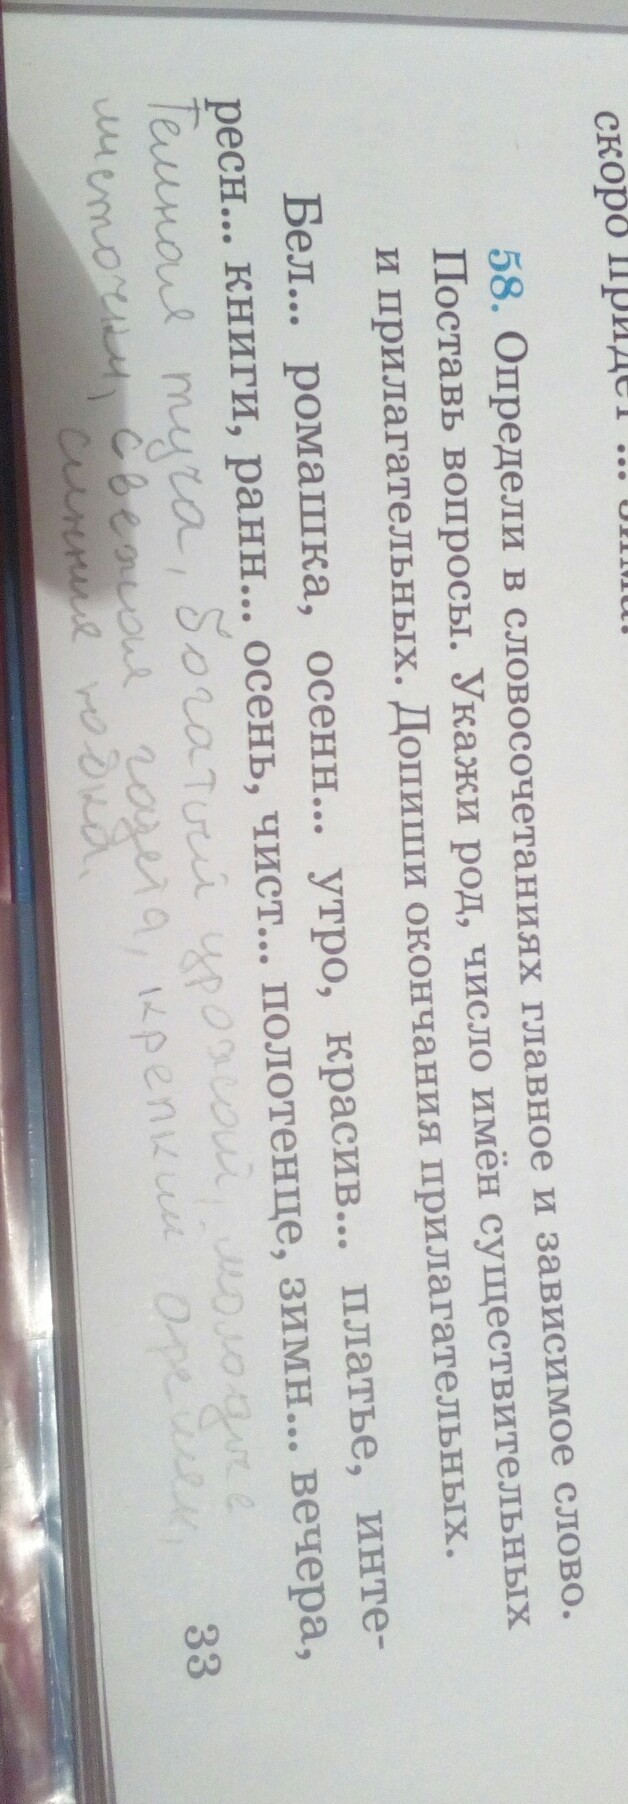 скоро придёт ... зима.
58. Определи в словосочетаниях главное и зависимое слово.
Поставь вопросы. Укажи род, число имён существительных
и прилагательных. Допиши окончания прилагательных.
Бел... ромашка, осенн... утро, красив... платье, инте-
ресн... книги, ранн... осень, чист... полотенце, зимн... вечера,
Темная туча, богатый урожай, молодые
листочки, свежая газета, крепкий орешек,
синяя лодка.
33